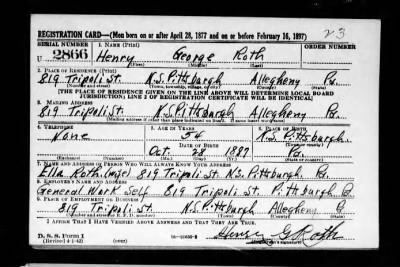 REGISTRATION CARD—(Men born on or after April 28, 1877 and on or before February 16, 1897)
23
SERIAL NUMBER
1. NAME (Print)
U 2866
Henry George Roth
(First) (Middle) (Last)
2. PLACE OF RESIDENCE (Print)
819 Tripoli St. N.S. Pittsburgh Allegheny Pa.
(Number and street) (Town, township, village, or city) (County) (State)
[THE PLACE OF RESIDENCE GIVEN ON THE LINE ABOVE WILL DETERMINE LOCAL BOARD
JURISDICTION; LINE 2 OF REGISTRATION CERTIFICATE WILL BE IDENTICAL]
3. MAILING ADDRESS
819 Tripoli St. N.S. Pittsburgh Allegheny Pa.
[Mailing address if other than place indicated on line 2. If same insert word same]
4. TELEPHONE
5. AGE IN YEARS
6. PLACE OF BIRTH
None
54
N.S. Pittsburgh
DATE OF BIRTH
(Town or county)
Oct. 28 1887
Pa.
(Exchange) (Number)
(Mo.) (Day) (Yr.)
(State or country)
7. NAME AND ADDRESS OF PERSON WHO WILL ALWAYS KNOW YOUR ADDRESS
Ella Roth (wife) 819 Tripoli St. N.S. Pittburgh Pa.
8. EMPLOYER'S NAME AND ADDRESS
General Work Self 819 Tripoli St. Pittburgh Pa.
9. PLACE OF EMPLOYMENT OR BUSINESS
819 Tripoli St. N.S. Pittsburgh Allegheny Pa.
(Number and street or R. F. D. number) (Town) (County) (State)
I AFFIRM THAT I HAVE VERIFIED ABOVE ANSWERS AND THAT THEY ARE TRUE.
D. S. S. Form 1
(Revised 4-1-42) (over)
Henry G Roth
(Registrant's signature)